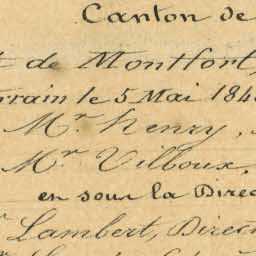 Canton de
de Montfort,
rrain le 5 Mai 184
Mr. Henry,
Mr Villoux,
en sous la Direc
Lambert, Direc